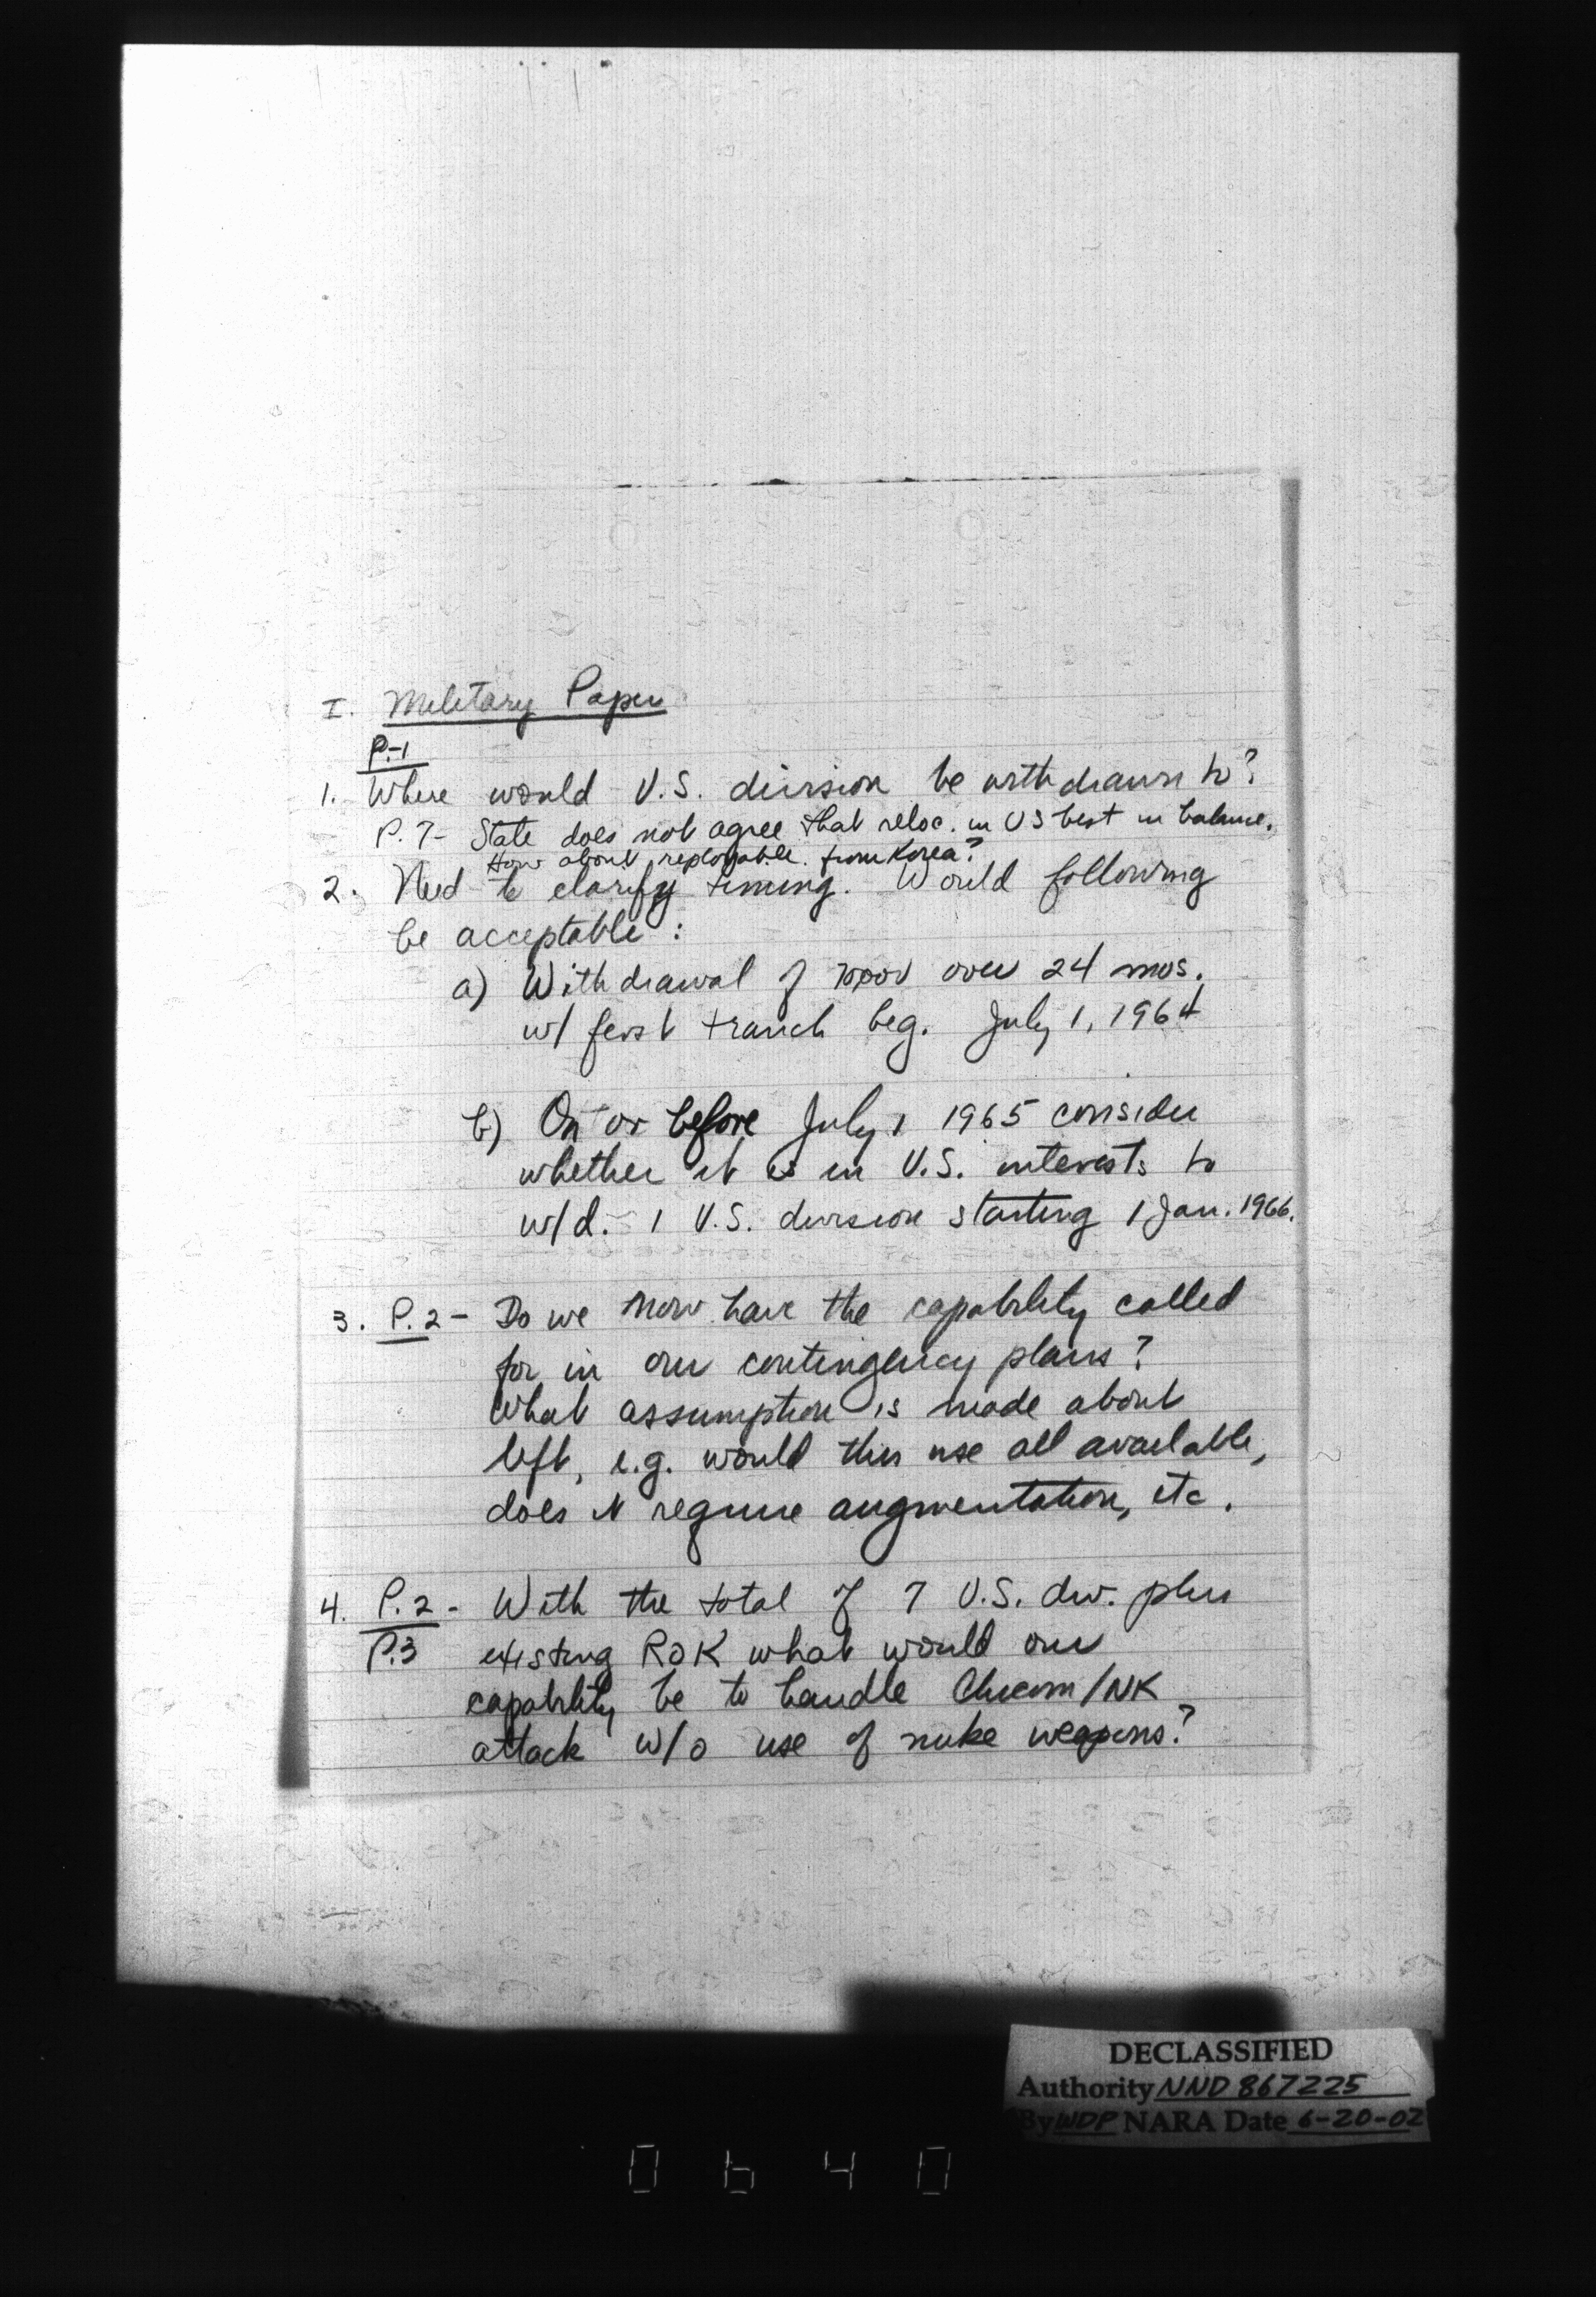 I. Military Paper
P.-1
1. Where would U.S. division be withdrawn to?
P. 7- State does not agree that reloc. in US best in balance.
How about from Korea?
2. Need to clarify timing. Would following
be acceptable :
a) Withdrawal of over 24 mos.
w/ first tranch beg. July 1, 1964
b) On or before July 1 1965 consider
whether it is in U.S. interests to
w/d. 1 U.S. division starting 1 Jan. 1966.
3. P. 2 - Do we now have the capability called
for in our contingency plans?
What assumption is made about
left, e.g. would this use all available,
does it require augmentation, etc.
4. P. 2 - With the total of 7 U.S. div. plus
P.3 existing ROK what would our
capability be to handle Chicom/NK
attack w/o use of nuke weapons?
DECLASSIFIED
Authority NND 867225
By WDP NARA Date 6-20-02
0640